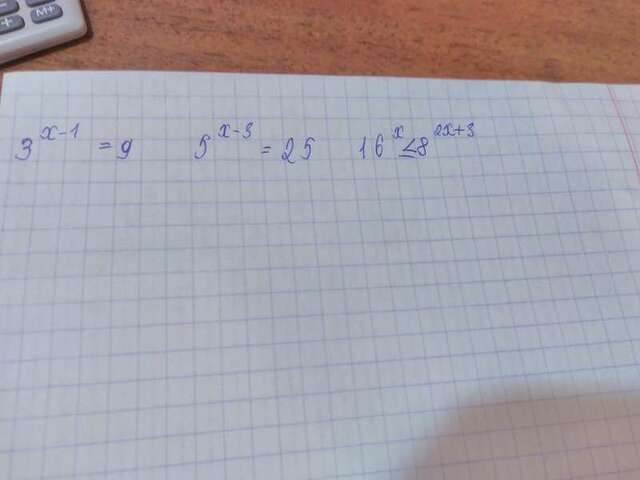 3^{x-1} = 9 5^{x-3} = 25 16^{x} ≤ 8^{2x+3}
M+